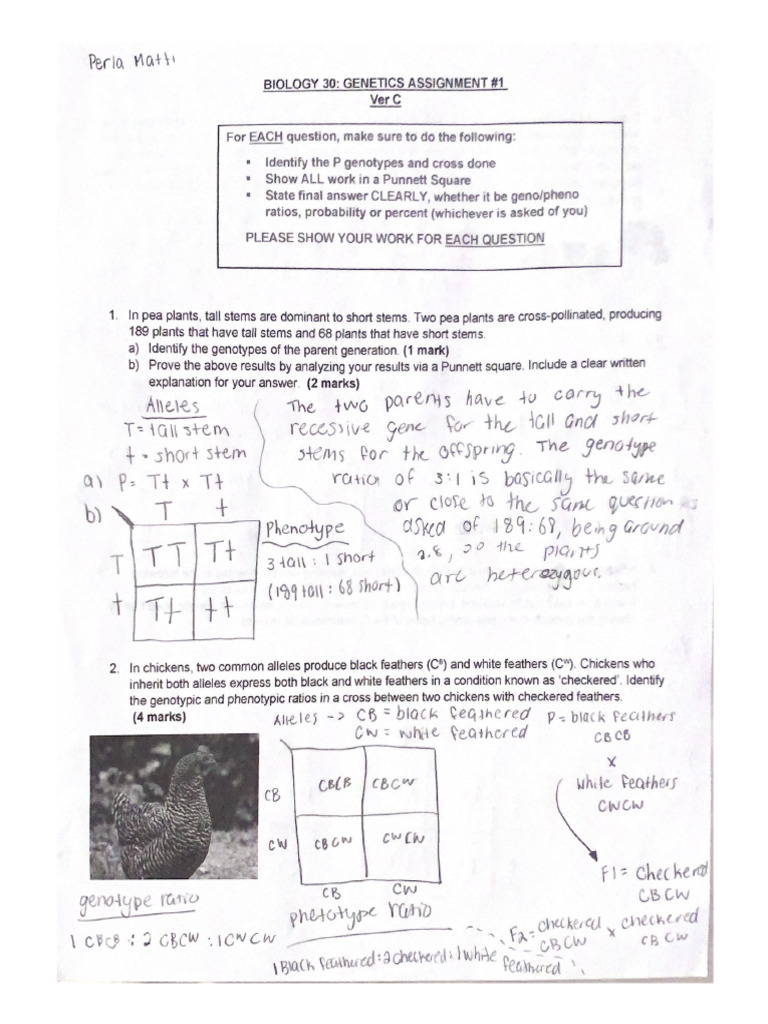 Perla Matti
BIOLOGY 30: GENETICS ASSIGNMENT #1
Ver C
For EACH question, make sure to do the following:
▪ Identify the P genotypes and cross done
▪ Show ALL work in a Punnett Square
▪ State final answer CLEARLY, whether it be geno/pheno
ratios, probability or percent (whichever is asked of you)
PLEASE SHOW YOUR WORK FOR EACH QUESTION
1. In pea plants, tall stems are dominant to short stems. Two pea plants are cross-pollinated, producing
189 plants that have tall stems and 68 plants that have short stems.
a) Identify the genotypes of the parent generation. (1 mark)
b) Prove the above results by analyzing your results via a Punnett square. Include a clear written
explanation for your answer. (2 marks)
Alleles
T = tall stem
t = short stem
a) P = Tt x Tt
b) T t
T TT Tt
t Tt tt
Phenotype
3 tall : 1 short
(189 tall : 68 short)
The two parents have to carry the
recessive gene for the tall and short
stems for the offspring. The genotype
ratio of 3:1 is basically the same
or close to the same question is
asked of 189:68, being around
2.8, so the plants
are heterozygous.
2. In chickens, two common alleles produce black feathers (Cᴮ) and white feathers (Cʷ). Chickens who
inherit both alleles express both black and white feathers in a condition known as 'checkered'. Identify
the genotypic and phenotypic ratios in a cross between two chickens with checkered feathers.
(4 marks)
Alleles -> CB = black feathered
CW = white feathered
CB CBCB CBCW
CW CBCW CWCW
CB CW
P = black feathers
CBCB
x
White feathers
CWCW
F1 = Checkered
CBCW
F2 = checkered x checkered
CBCW CBCW
genotype ratio
1 CBCB : 2 CBCW : 1 CWCW
phetotype ratio
1 Black feathered : 2 checkered : 1 white
feathered